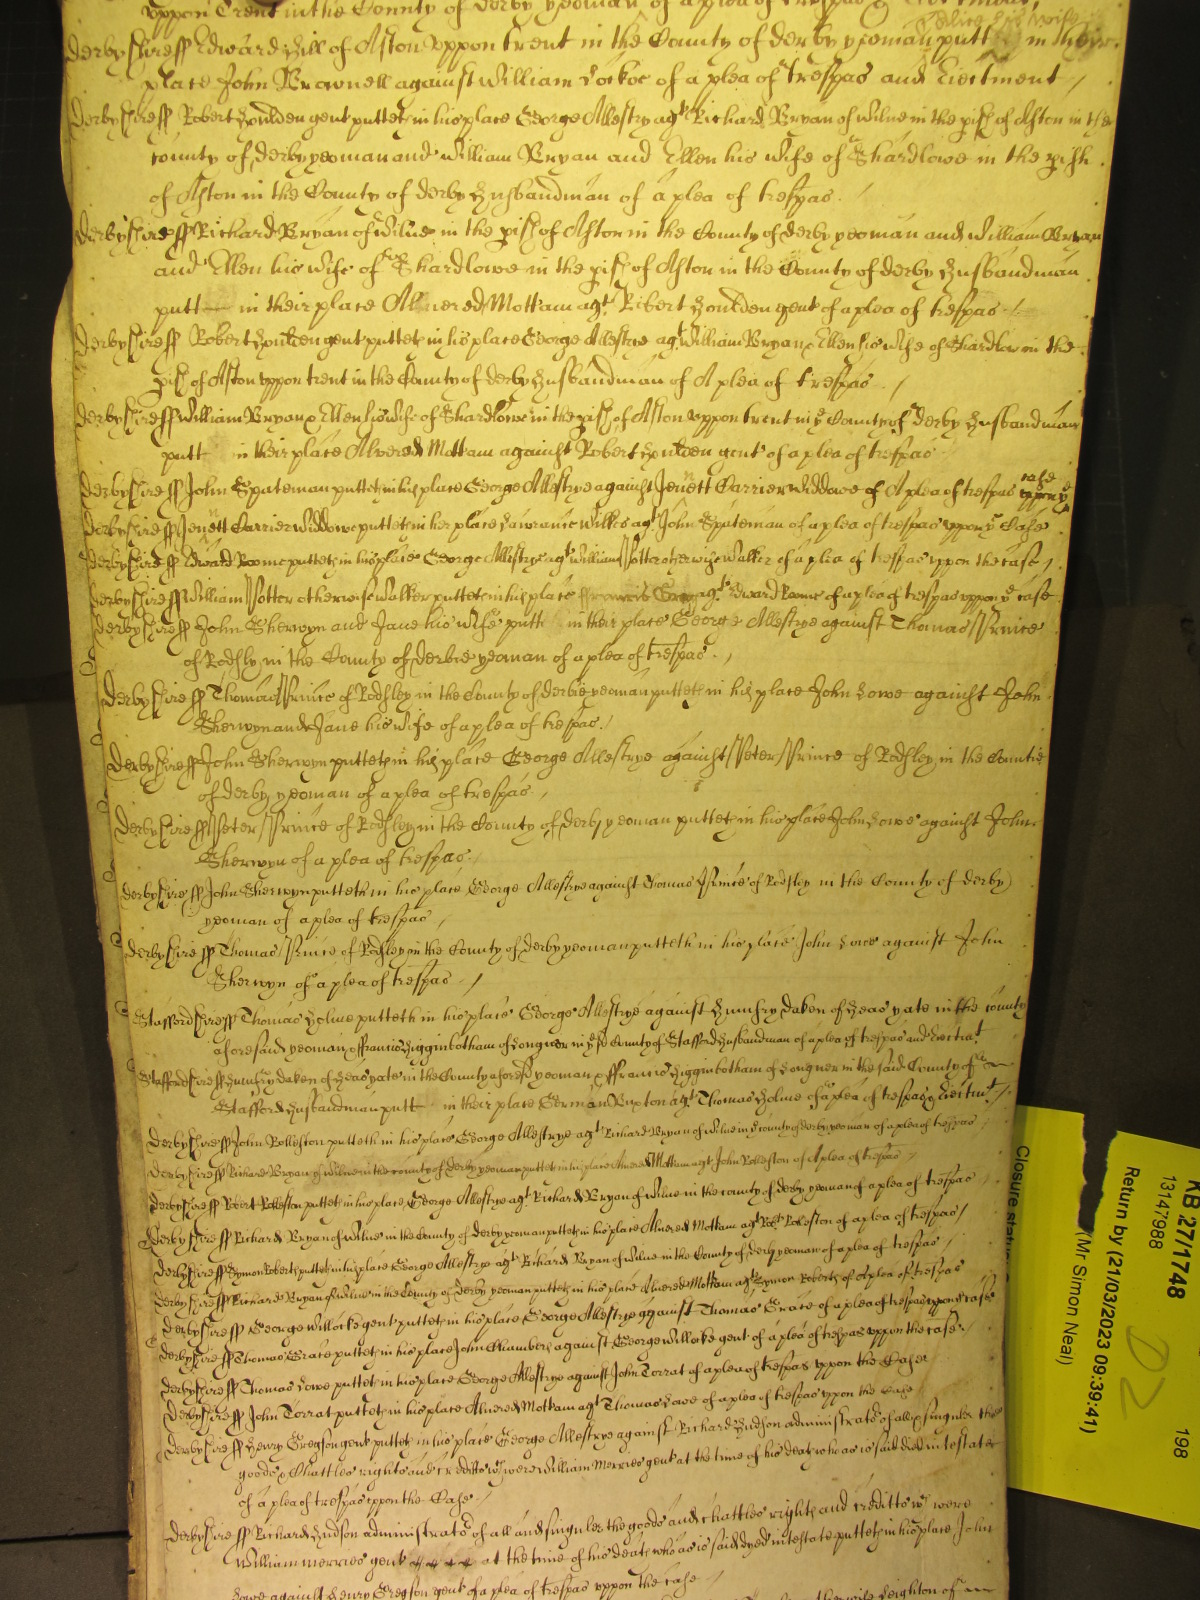 uppon Trent in the County of derby yeoman of a plea of trespas &
Derbyshire ss Edward Hill of Aston uppon trent in the County of derby yeoman putt in their
place John Brownell against William Lockoe of a plea of trespas and Eiectment /
Derbyshire ss Robert Houlden gent putteth in his place George Allestry agt Richard Bryan of Wilne in the pish of Aston in the
County of derby yeoman and William Bryan and Ellen his wife of Shardlowe in the pish
of Aston in the County of derby Husbandman of a plea of trespas /
Derbyshire ss Richard Bryan of Wilne in the pish of Aston in the County of derby yeoman and William Bryan
and Ellen his wife of Shardlowe in the pish of Aston in the County of derby Husbandman
putt in their place Alvered Mottam agt Robert Houlden gent of a plea of trespas /
Derbyshire ss Robert Houlden gent putteth in his place George Allestrye agt William Bryan & Ellen his wife of Shardlow in the
pish of Aston uppon trent in the County of derby Husbandman of A plea of trespas /
Derbyshire ss William Bryan & Ellen his wife of Shardlowe in the pish of Aston uppon trent in ye County of derby Husbandman
putt in their place Alvered Mottam against Robert Houlden gent of a plea of trespas
Derbyshire ss John Spateman putteth in his place George Allestrye against Jenett Carrier Widdowe of A plea of trespas uppon ye case
Derbyshire ss Jenett Carrier Widdowe putteth in her place Lawrance Wilkes agt John Spateman of a plea of trespas uppon ye Case
Derbyshire ss Edward Roome putteth in his place George Allestrye agt William Potter otherwise Walker of a plea of trespas uppon the case /
Derbyshire ss William Potter otherwise Walker putteth in his place agt Edward Roome of a plea of trespas uppon ye case
Derbyshire ss John Sherwyn and Jane his wife putt in their place George Allestrye against Thomas Prince
of Rodsly in the County of derbie yeoman of a plea of trespas /
Derbyshire ss Thomas Prince of Rodsley in the County of derbie yeoman putteth in his place John Lowe against John
Sherwyn and Jane his wife of a plea of trespas /
Derbyshire ss John Sherwyn putteth in his place George Allestrye against Peter Prince of Rodsley in the Countie
of derby yeoman of a plea of trespas /
Derbyshire ss Peter Prince of Rodsley in the County of derby yeoman putteth in his place John Lowe against John
Sherwyn of a plea of trespas /
Derbyshire ss John Sherwyn putteth in his place George Allestrye against Thomas Prince of Rodsley in the County of derby
yeoman of a plea of trespas /
Derbyshire ss Thomas Prince of Rodsley in the County of derby yeoman putteth in his place John Lowe against John
Sherwyn of a plea of trespas /
Staffordshire ss Thomas Holme putteth in his place George Allestrye against Humfry Daken of Heas yate in the County
aforesaid yeoman & ffrancis Higginbotham of Longner in ye sd County of Stafford Husbandman of a plea of trespas and Eiectmt
Staffordshire ss Humfry Daken of Heas yate in the County aforesd yeoman & ffrancis Higginbotham of Longner in the said County of
Stafford Husbandman putt in their place German Buxton agt Thomas Holme of a plea of trespas & Eiectmt /
Derbyshire ss John Rolleston putteth in his place George Allestrye agt Richard Bryan of Wilne in ye County of derby yeoman of a plea of trespas
Derbyshire ss Richard Bryan of Wilne in the County of derby yeoman putteth in his place Alvered Mottam agt John Rolleston of A plea of trespas
Derbyshire ss Robert Rolleston putteth in his place George Allestrye agt Richard Bryan of Wilne in the County of derby yeoman of a plea of trespas
Derbyshire ss Richard Bryan of Wilne in the County of derby yeoman putteth in his place Alvered Mottam agt Robt Rolleston of a plea of trespas /
Derbyshire ss Symon Roberts putteth in his place George Allestrye agt Richard Bryan of Wilne in the County of derby yeoman of a plea of trespas
Derbyshire ss Richard Bryan of Wilne in the County of derby yeoman putteth in his place Alvered Mottam agt Symon Roberts of A plea of trespas
Derbyshire ss George Willocke gent putteth in his place George Allestrye against Thomas Grace of a plea of trespas uppon ye case
Derbyshire ss Thomas Grace putteth in his place John Chambers against George Willocke gent of a plea of trespas uppon the case /
Derbyshire ss Thomas Lowe putteth in his place George Allestrye against John Torrat of a plea of trespas uppon the Case
Derbyshire ss John Torrat putteth in his place Alvered Mottam agt Thomas Lowe of a plea of trespas uppon the Case
Derbyshire ss Henry Gregson gent putteth in his place George Allestrye against Richard Hudson administrator of all & singuler the
goods & Chattles rights and creditts wch were William Merries gent at the time of his death who as is said died intestate
of a plea of trespas uppon the Case /
Derbyshire ss Richard Hudson administrator of all and singuler the goods and chattles rights and creditts wch were
William merries gent at the time of his death who as is said dyed intestate putteth in his place John
Lowe against Henry Gregson gent of a plea of trespas uppon the case /
Leighton of
KB 27/1748
1314798
198
Return by (21/03/2023 09:39:41)
(Mr Simon Neal)
D2
Closure status